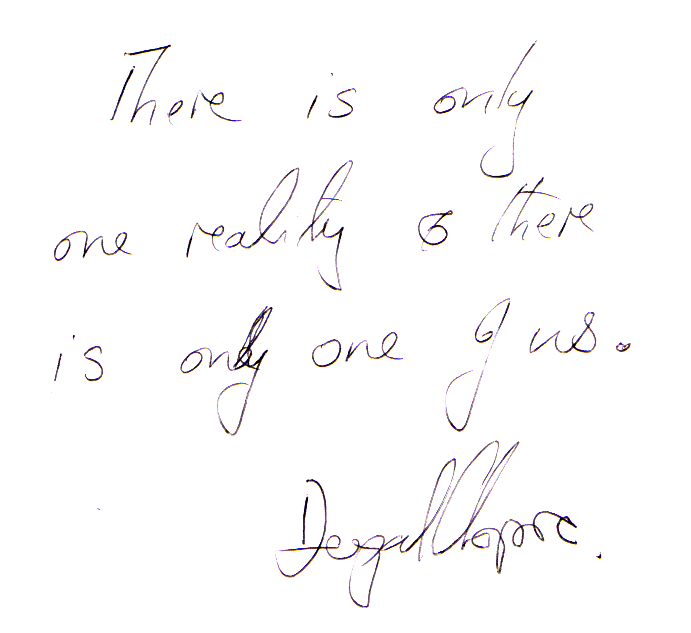 There is only
one reality & there
is only one of us.
Deepak Chopra.